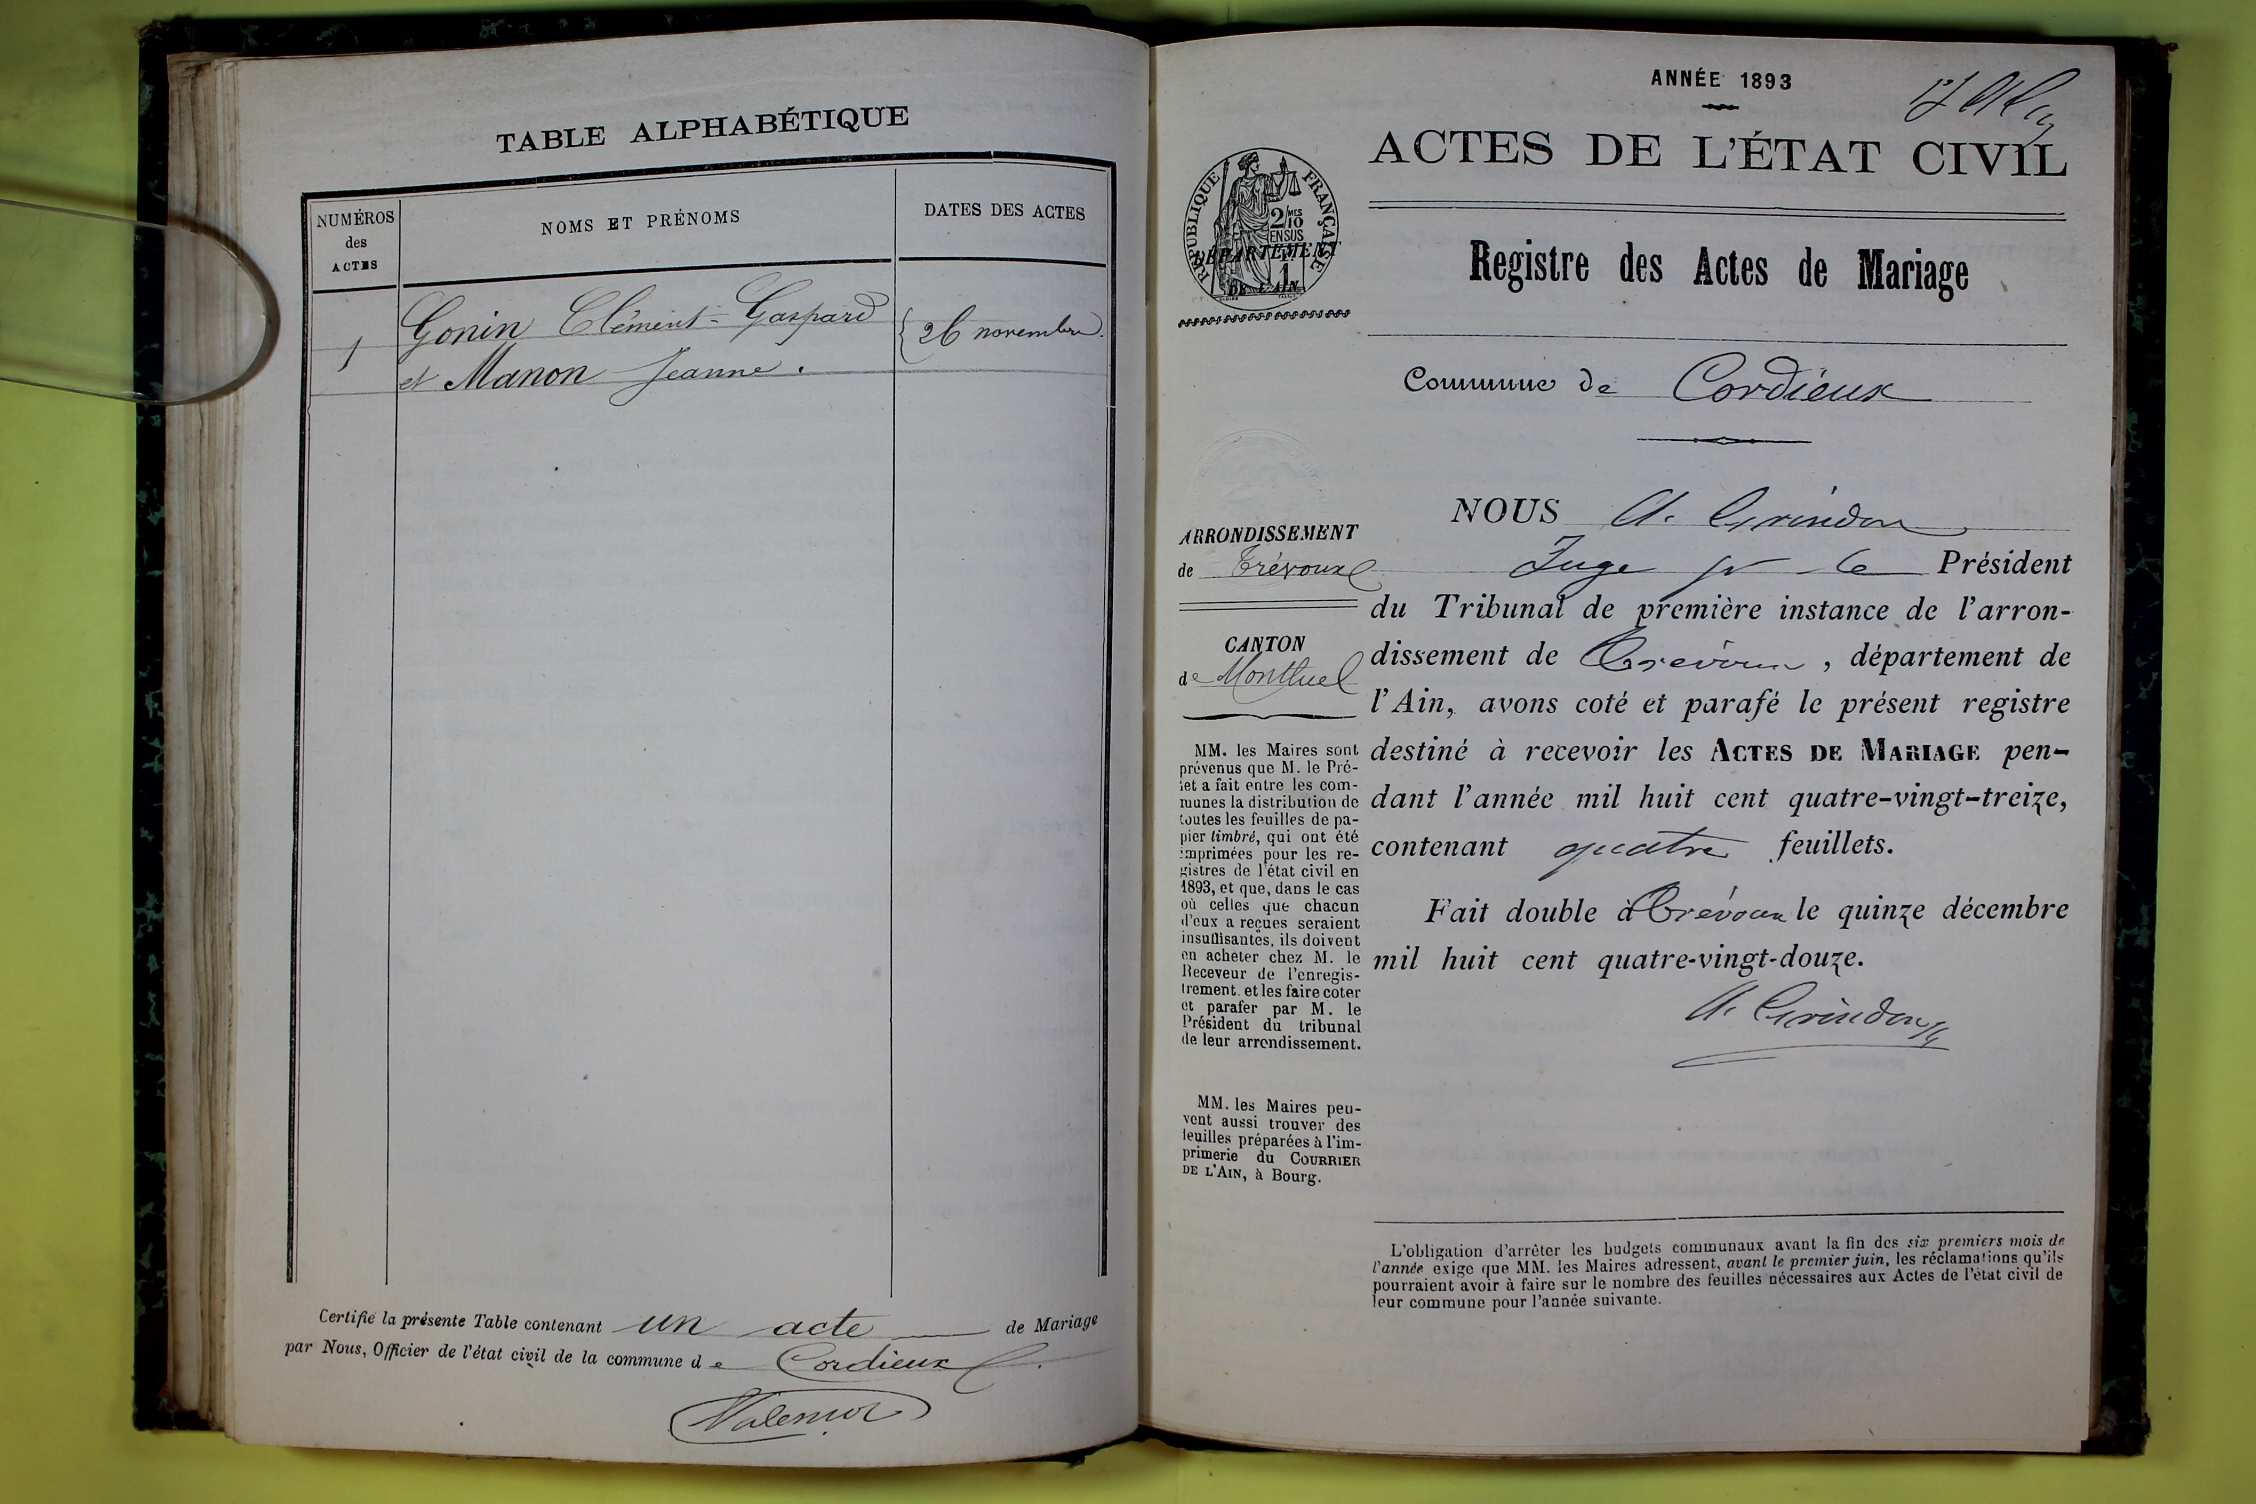 TABLE ALPHABÉTIQUE
NUMÉROS
des
ACTES
NOMS ET PRÉNOMS
DATES DES ACTES
1
Gonin Clément-Gaspard
et Manon Jeanne.
26 novembre.
Certifie la présente Table contenant un acte de Mariage
par Nous, Officier de l'état civil de la commune de Cordieux.
ANNÉE 1893
ACTES DE L'ÉTAT CIVIL
RÉPUBLIQUE FRANÇAISE
2/10
MES
EN SUS
DÉPARTEMENT
DE L'AIN
Registre des Actes de Mariage
Commune de Cordieux
ARRONDISSEMENT
de Trévoux
CANTON
de Montluel
MM. les Maires sont
prévenus que M. le Pré-
fet a fait entre les com-
munes la distribution de
toutes les feuilles de pa-
pier timbré, qui ont été
imprimées pour les re-
gistres de l'état civil en
1893, et que, dans le cas
où celles que chacun
d'eux a reçues seraient
insuffisantes, ils doivent
en acheter chez M. le
Receveur de l'enregis-
trement. et les faire coter
et parafer par M. le
Président du tribunal
de leur arrondissement.
MM. les Maires peu-
vent aussi trouver des
feuilles préparées à l'im-
primerie du COURRIER
DE L'AIN, à Bourg.
NOUS A. Grindon
Juge pr le Président
du Tribunal de première instance de l'arron-
dissement de Trévoux, département de
l'Ain, avons coté et parafé le présent registre
destiné à recevoir les ACTES DE MARIAGE pen-
dant l'année mil huit cent quatre-vingt-treize,
contenant quatre feuillets.
Fait double à Trévoux le quinze décembre
mil huit cent quatre-vingt-douze.
A. Grindon
L'obligation d'arrêter les budgets communaux avant la fin des six premiers mois de
l'année exige que MM. les Maires adressent, avant le premier juin, les réclamations qu'ils
pourraient avoir à faire sur le nombre des feuilles nécessaires aux Actes de l'état civil de
leur commune pour l'année suivante.